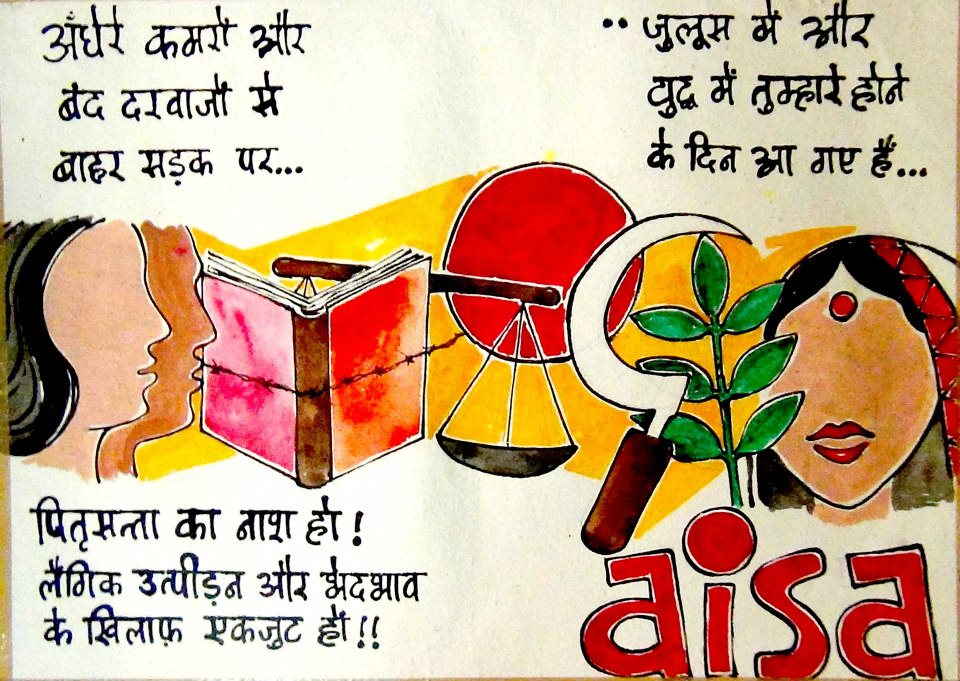 अँधेरे कमरों और
बंद दरवाजों से
बाहर सड़क पर...
.. जुलूस में और
युद्ध में तुम्हारे होने
के दिन आ गए हैं...
पितृसत्ता का नाश हो!
लैंगिक उत्पीड़न और भेदभाव
के खिलाफ़ एकजुट हों!!
aisa